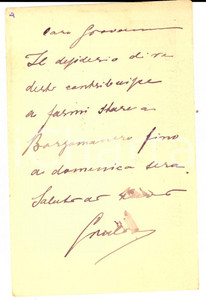 Caro Giovanni
Il desiderio di ve
derti contribuisce
a farmi stare a
Borgomanero fino
a domenica sera.
Saluto